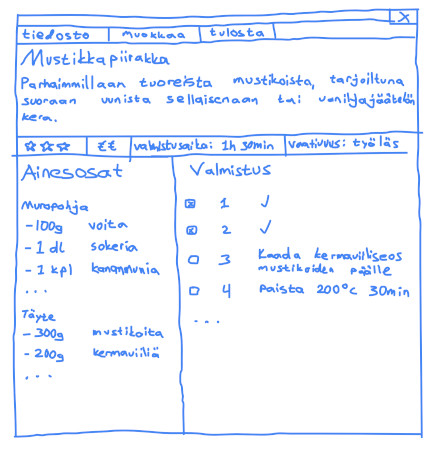 X
tiedosto muokkaa tulosta
Mustikkapiirakka
Parhaimmillaan tuoreista mustikoista, tarjoiltuna
suoraan uunista sellaisenaan tai vaniljajäätelön
kera.
☆☆☆ €€ valmistusaika: 1h 30min vaativuus: työläs
Ainesosat
Muropohja
-100g voita
-1 dl sokeria
-1 kpl kananmunia
...
Täyte
-300g mustikoita
-200g kermaviiliä
...
Valmistus
☒ 1 ✓
☒ 2 ✓
☐ 3 Kaada kermaviiliseos
mustikoiden päälle
☐ 4 Paista 200°C 30min
...